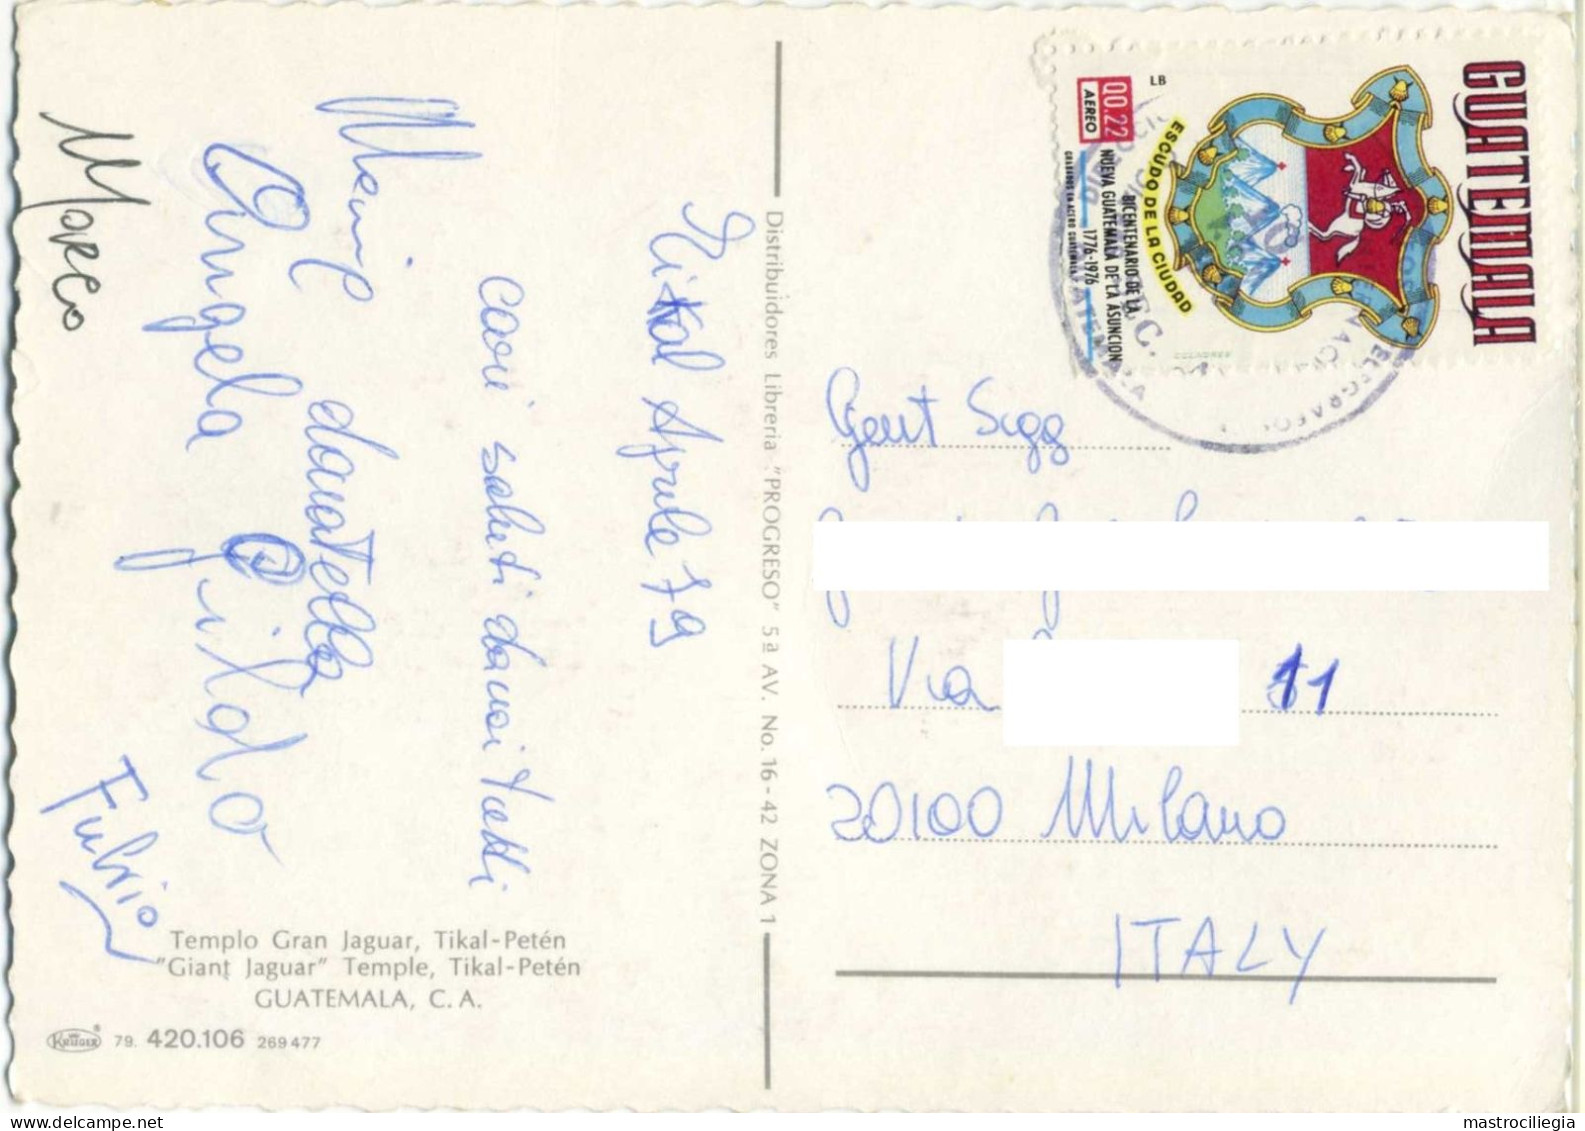 Tikal Aprile 79
cari saluti da noi tutti
Angela
donatella
Gildo
Marco
Fulvio
Templo Gran Jaguar, Tikal-Petén
"Giant Jaguar" Temple, Tikal-Petén
GUATEMALA, C. A.
KRÜGER 79. 420.106 269477
Distribuidores Libreria "PROGRESO" 5a AV. No. 16-42 ZONA 1
GUATEMALA
LB
Q0.22
AEREO
ESCUDO DE LA CIUDAD
BICENTENARIO DE LA
NUEVA GUATEMALA DE LA ASUNCION
1776-1976
GRABADOS EN ACERO GUATEMALA
Gent Sigg
Via 11
20100 Milano
ITALY
mastrociliegia